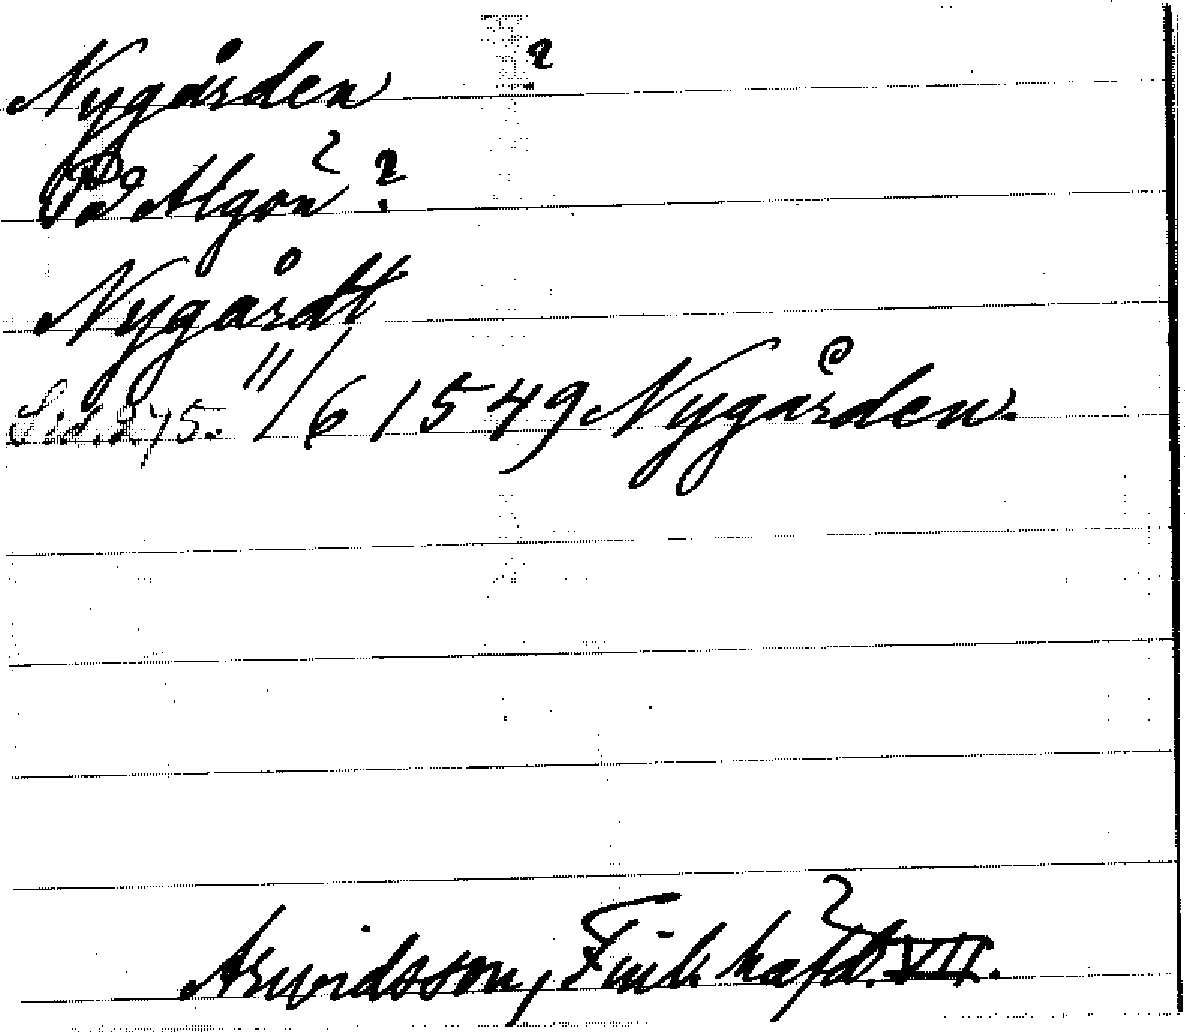 Nygården ?
På Algön ?
Nygårdt
Sid. 275. 11/6 1549 Nygården.
Arwidsson, Finl. häfd. VII.